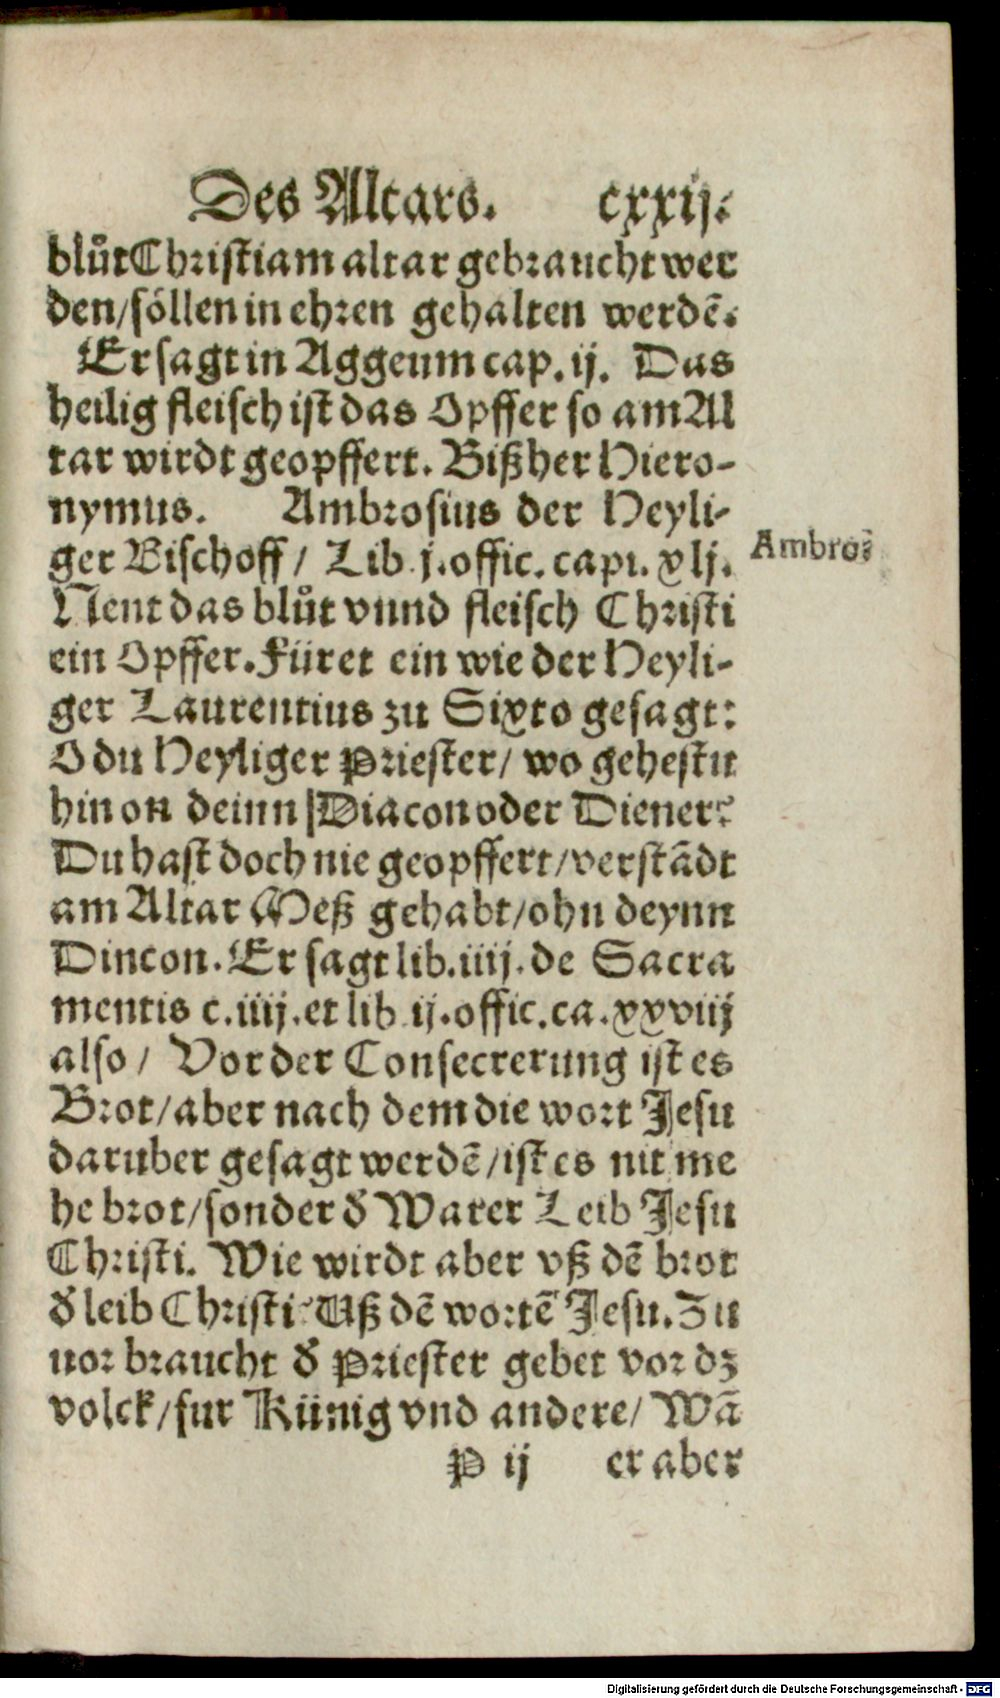 Des Altars. cxxij.
blůt Christi am altar gebraucht wer
den/söllen in ehren gehalten werdē.
Er sagt in Aggeum cap.ij. Das
heilig fleisch ist das Opffer so am Al
tar wirdt geopffert. Bißher Hiero-
nymus. Ambrosius der Heyli-
ger Bischoff/ Lib j.offic.capi. xlj.
Ambros
Nent das blůt vnnd fleisch Christi
ein Opffer. Füret ein wie der Heyli-
ger Laurentius zu Sixto gesagt:
O du Heyliger Priester/ wo gehestu
hin on deinn Diacon oder Diener?
Du hast doch nie geopffert/verstādt
am Altar Meß gehabt/ohn deynn
Dincon. Er sagt lib.iiij.de Sacra
mentis c.iiij.et lib ij.offic.ca.xxviij
also/ Vor der Consecrerung ist es
Brot/aber nach dem die wort Jesu
daruber gesagt werdē/ist es nit me
he brot/sonder d̕ Warer Leib Jesu
Christi. Wie wirdt aber vß dē brot
d̕ leib Christi? Uß dē wortē Jesu. Zu
uor braucht d̕ Priester gebet vor dz
volck/fur Künig vnd andere/ Wā
P ij er aber
Digitalisierung gefördert durch die Deutsche Forschungsgemeinschaft - DFG